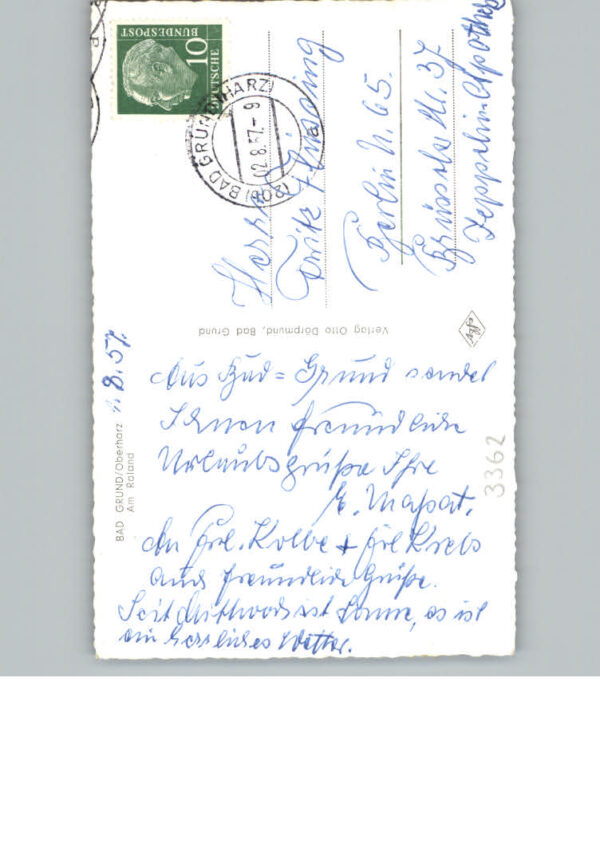 DEUTSCHE
BUNDESPOST
10
(20b) BAD GRUND (HARZ)
02.8.57.- 9
a
Herrn
Fritz
Berlin N. 65.
Brüssele Str. 37
Zeppelin-Apotheke
Verlag Otto Dörpmund, Bad Grund
BAD GRUND/Oberharz
Am Roland
1.8.57.
Aus Bad=Grund sendet
Ihnen freundliche
Urlaubsgrüße Ihre
E.
An Frl. Kolbe + Frl Krebs
auch freundliche Grüße.
Seit Mittwoch ist Sonne, es ist
ein herrliches Wetter.
3362